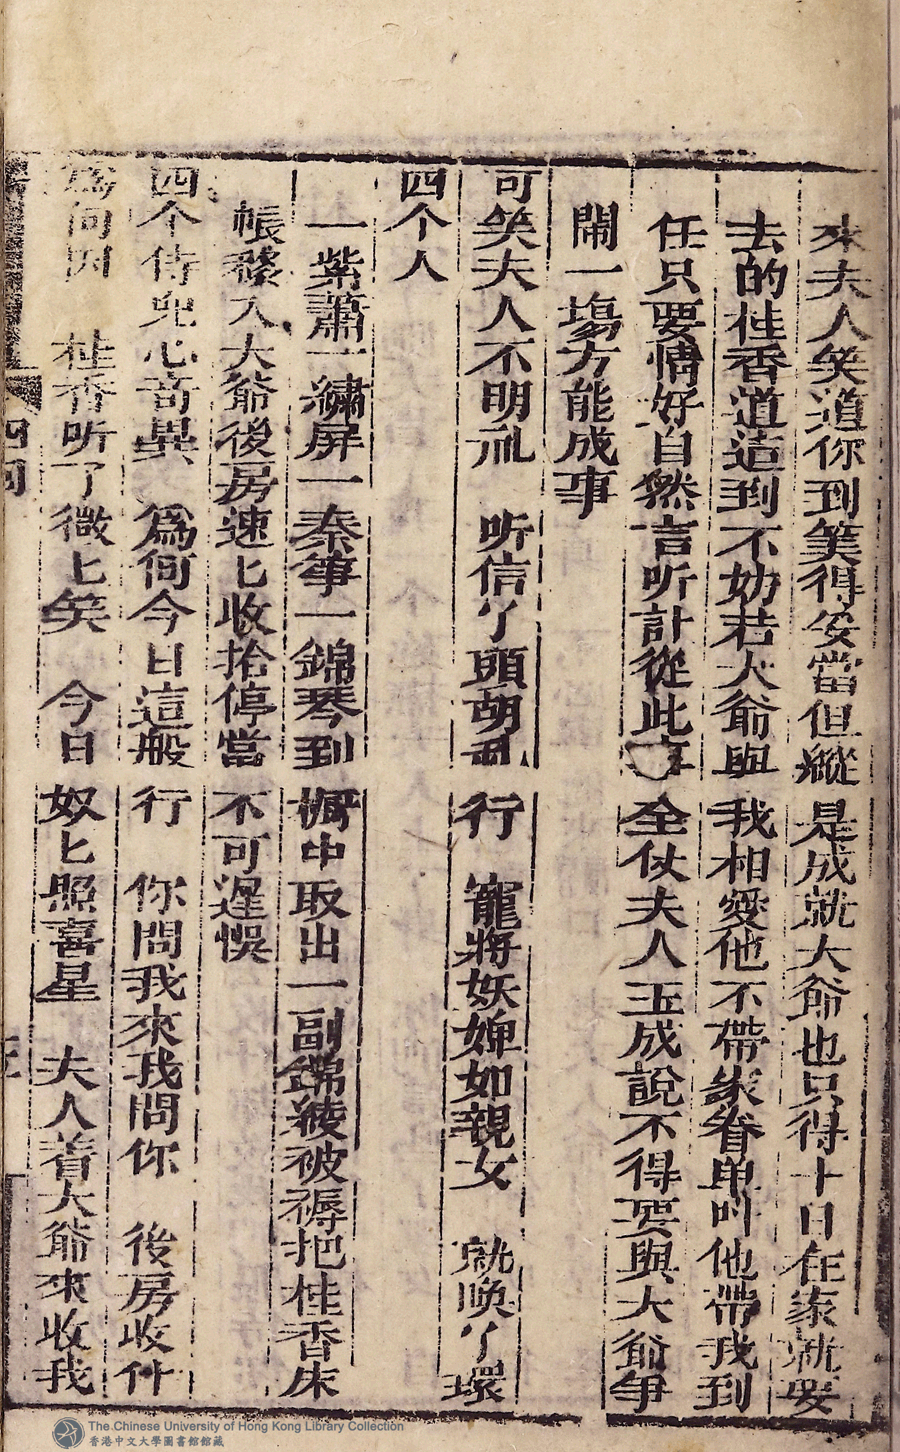 來夫人笑道你到筭得妥當但縱是成就大爺也只得十日在家就要
去的桂香道這到不妨若大爺與我相愛他不帶家眷单叫他帶我到
任只要情好自然言听計從此事全仗夫人玉成說不得要與大爺爭
鬧一塲方能成事
可笑夫人不明礼 听信丫頭胡乱行 寵將妖婢如親女 就喚丫環
四个人
一紫蕭一繡屏一秦箏一錦琴到櫥中取出一副錦綾被褥把桂香床
帳移入大爺後房速匕收拾停當不可遲悞
四个侍児心竒異 爲何今日這般行 你問我來我問你 後房收什
爲何因 桂香听了微匕笑 今日奴匕照喜星 夫人着大爺來收我
四囘
The Chinese University of Hong Kong Library Collection
香港中文大學圖書館館藏